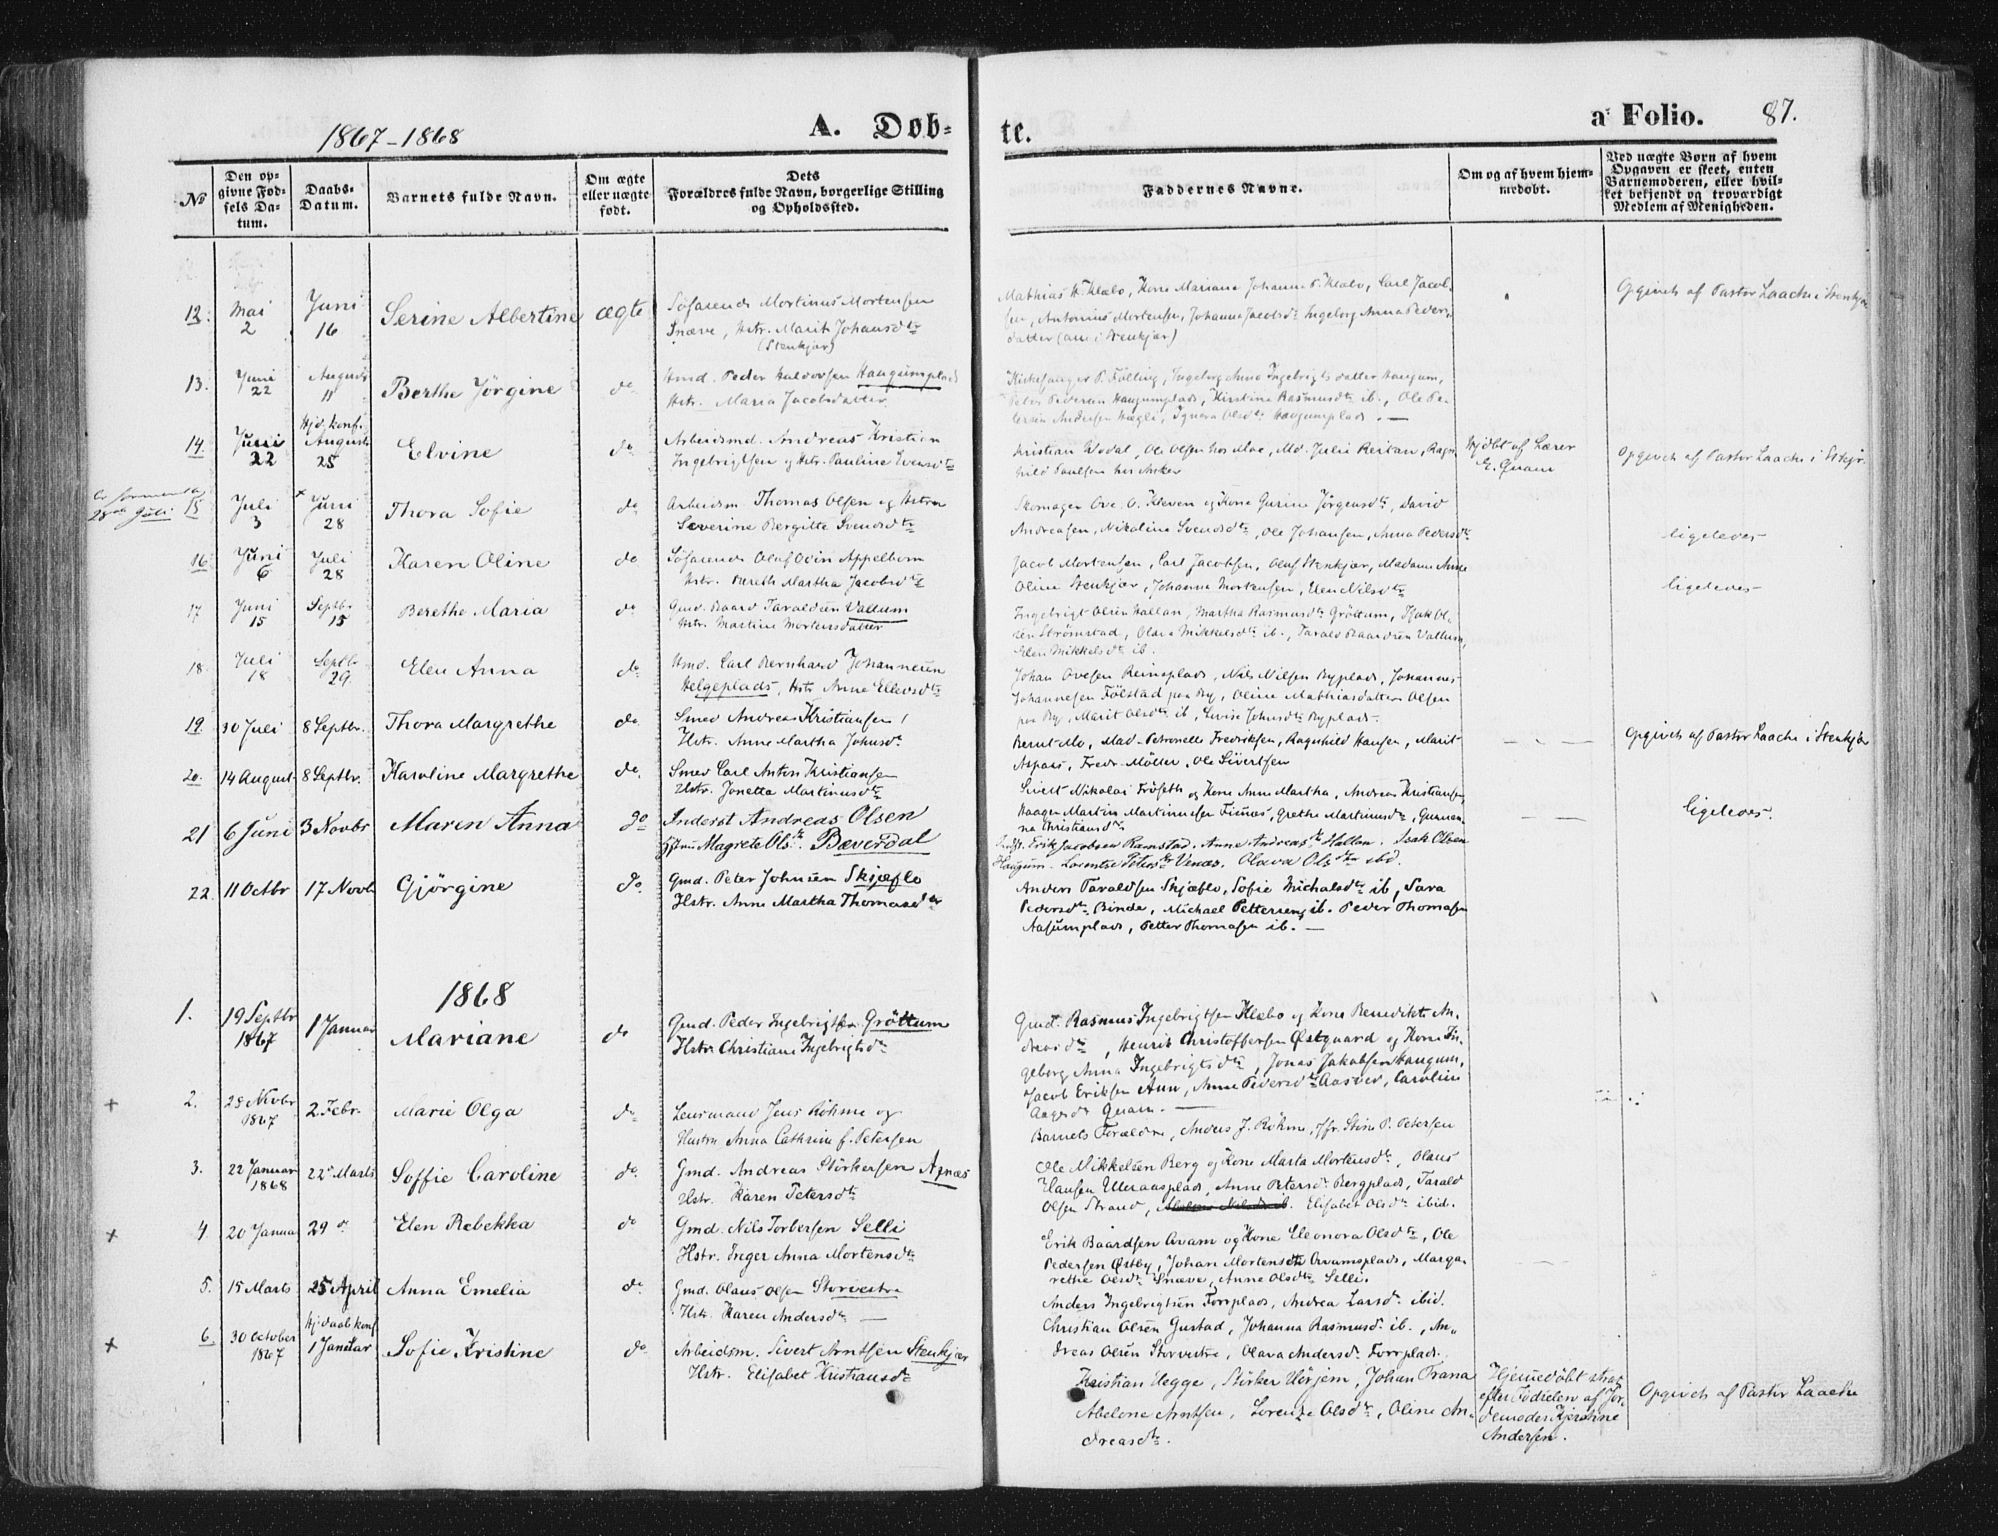 1867-1868
A. Døb-
te.
a Folio. 87.
No
Den op-
givne Fød-
sels Da-
tum.
Daabs-
Datum.
Barnets fulde Navn.
Om ægte
eller uægte
født.
Dets
Forældres fulde Navn, borgerlige Stilling
og Opholdssted.
Faddernes Navne.
Om og af hvem hjem-
medøbt.
Ved uægte Børn af hvem
Opgaven er skeet, enten
Barnemoderen, eller hvil-
ket bekjendt og troværdigt
Medlem af Menigheden.
12.
Mai
2
Juni
16
Serine Albertine
ægte
Søfarende Mortinus Mortensen
Snæve, Hstr. Marit Johansdtr
(Stenkjær)
Mathias H. Klæbo, Kone Mariane Johanna P. Klæbo, Carl Jacob-
sen, Antonius Mortensen, Johanna Jacobsdtr Ingeborg Anna Peders-
datter (alle i Stenkjær)
Opgivet af Pastor Laache i Stenkjær
13.
Juni
22
August
11
Berthe Jörgine
do
Hmd. Peder Halvorsen Haugumplads
Hstr. Maria Jacobsdatter
Kirkesanger P. Fölling, Ingeborg Anna Ingebrigtsdatter Haugum,
Peter Pedersen Haugumplads, Kirstine Rasmusdtr ib., Ole Pe-
tersen Andersen Hegli, Olsdtr Haugumplads. —
14.
Juni
22
Hjd. konf.
August
25
Elvine
do
Arbeidsmd. Andreas Kristian
Ingebrigtsen og Hstr. Pauline Svensdtr
Kristian Wodal, Ole Olsen hos Moe, Md. Julie Reitan, Ragn-
hild Paulsen hos Anker
Hjdbt af Lærer
E. Quam
Opgivet af Pastor Laache i Stkjr.
28de Juli
15
Juli
3
× Juni
28
Thora Sofie
do
Arbeidsm. Thomas Olsen og Hstru
Severine Bergitte Svendsdtr
Skomager Ove O. Kleven og Kone Gurine Jörgensdtr, David
Andreasen, Nikoline Svendsdtr, Ole Johansen, Anna Pedersdtr
ligeledes
16
Juni
6
Juli
28
Karen Oline
do
Søfarende Oluf Odin Appelborn
Hstr. Bereth Martha Jacobsdtr
Jacob Mortensen, Carl Jacobsen, Oluf Stenkjær, Madame Anne
Oline Stenkjær, Johanna Mortensen, Elen Nilsdtr
ligeledes
17
Juni
15
Septbr
15
Berethe Maria
do
Gmd. Baard Taraldsen Vallum
Hstr. Martine Mortensdatter
Ingebrigt Olsen Hallan, Martha Rasmusdtr Gröttum, Isak Ol-
sen Strömstad, Olava Mikkelsdtr ib. Tarald Baardsen Vallum,
Elen Mikkelsdtr ib.
18.
Juli
18
Septbr
29
Elen Anna
do
Hmd. Carl Bernhard Johannesen
Helgeplads, Hstr Anne Ellevsdtr
Johan Ovesen Reinsplads, Nils Nilsen Byplads, Johannes
Johannesen Fölstad paa By, Oline Mathiasdatter Olsen
paa By, Marit Olsdtr ib, Lovise Johnsdtr Byplads.
19.
30 Juli
8 Septbr.
Thora Margrethe
do
Smed Andreas Kristiansen /
Hstr. Anne Martha Johnsdtr
Bernt Mo, Mad. Petronelle Fredriksen, Ragnhild Hansen, Marit
Aspaas, Fredr. Möller, Ole Sivertsen
Opgivet af Pastor Laache i Stenkjær
20.
14 August
8 Septbr.
Karoline Margrethe
do.
Smed Carl Anton Kristiansen
Hstr. Jonetta Martinusdtr
Sivert Nikolai Fröseth og Kone Anne Martha, Andreas Kristiansen,
Haagen Martin Martinusen Finnæs, Grethe Martinusdtr, Gunnen-
na Christiansdtr
ligeledes.
21
6 Juni
3 Novbr
Maren Anna
do
Inderst Andreas Olsen
Magrete Olsdtr. Bæverdal
Indst. Erik Jacobsen Ramstad. Anne Andreasdtr Hallan. Isak Olsen
Haugum. Lorentse Petersdtr Venæs. Olava Olsdtr ibd.
22.
11 Octbr
17 Novb
Gjörgine
do.
Gmd. Peter Johnsen Skjæflo
Hstr. Anne Martha Thomasdtr
Anders Taraldsen Skjæflo, Sofie Michalsdtr ib, Sara
Pedersdtr Binde, Michael Pettersen ib. Peder Thomasen
Aasumplads, Petter Thomasen ib. —
1868
1.
19 Septbr
1867
1 Januar
Mariane
do
Gmd. Peder Ingebrigtsen Gröttum
Hstr Christiane Ingebrigtsdtr
Gmd. Rasmus Ingebrigtsen Klæbo og Kone Benedikte An-
dreasdtr, Henrik Christoffersen Østgaard og Kone In-
geborg Anna Ingebrigtsdtr, Jonas Jakobsen Haugum,
Jacob Eriksen Aun, Anne Pedersdtr Aasved, Caroline
Aagesdtr Quam. —
+
2.
28 Novbr
1867
2 Febr.
Marie Olga
do
Lensmand Jens Röhme og
Hustru Anna Cathrine f. Petersen
Barnets Forældre, Anders J. Röhme, Jfr. Stine P. Petersen
3.
22 Januar
1868
22 Marts
Soffie Caroline
do.
Gmd. Andreas Störkersen Apnæs
Hstr. Karen Petersdtr
Ole Mikkelsen Berg og Kone Marta Mortensdtr, Olaus
Hansen Ulleraasplads, Anne Petersdtr Bergplads, Tarald
Olsen Strand, Elisabet Olsdtr ibid.
+
4
20 Januar
29 do
Elen Rebekka
do
Gmd. Nils Torbersen Selli
Hstr. Inger Anna Mortensdtr
Erik Baardsen Qvam og Kone Eleonora Olsdtr, Ole
Pedersen Østby, Johan Mortensen Qvamsplads, Marga-
rethe Olsdtr Snæve, Anne Olsdtr Selli.
5.
15 Marts
25 April
Anna Emelia
do.
Gmd. Olaus Olsen Storvestre
Hstr. Karen Andersdtr —
Anders Ingebrigtsen Forrplads, Andrea Larsdtr ibid.
Christian Olsen Gustad, Johanna Rasmusdtr ib., An-
dreas Olsen Storvestre, Olava Andersdtr Forrplads.
+
6.
30 October
1867
Hjdaab konf
1 Januar
Sofie Kristine
do.
Arbeidsm. Sivert Arntsen Stenkjær
Hstr. Elisabet Kristiansdtr
Kristian Hegge, Störker Hörjem, Johan Trana
Abelone Arntsen, Lorentze Olsdtr, Oline An-
dreasdtr.
Hjemmedöbt strax
efter Födselen af Jor-
demoder Kjerstine
Andersen.
Opgivet af Pastor Laache